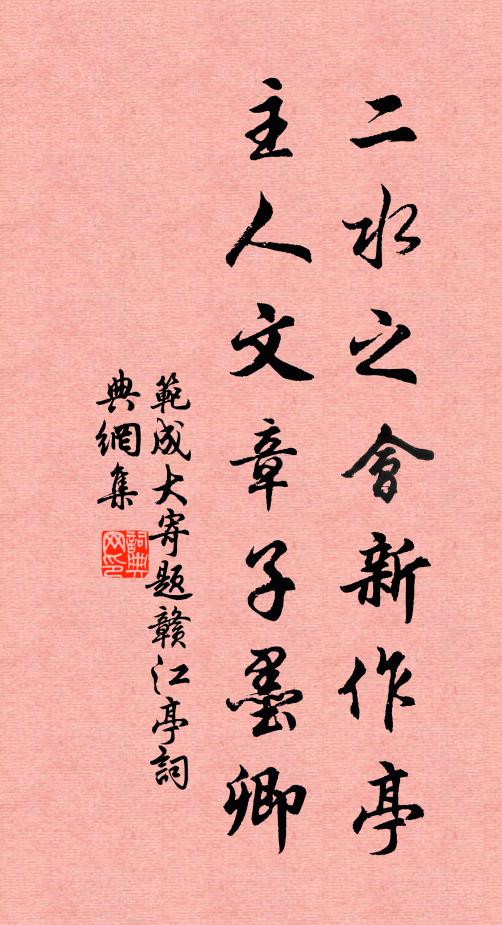 二水之會新作亭
主人文章子墨卿
範成大寄題贛江亭詞
典網集
詞典
网印